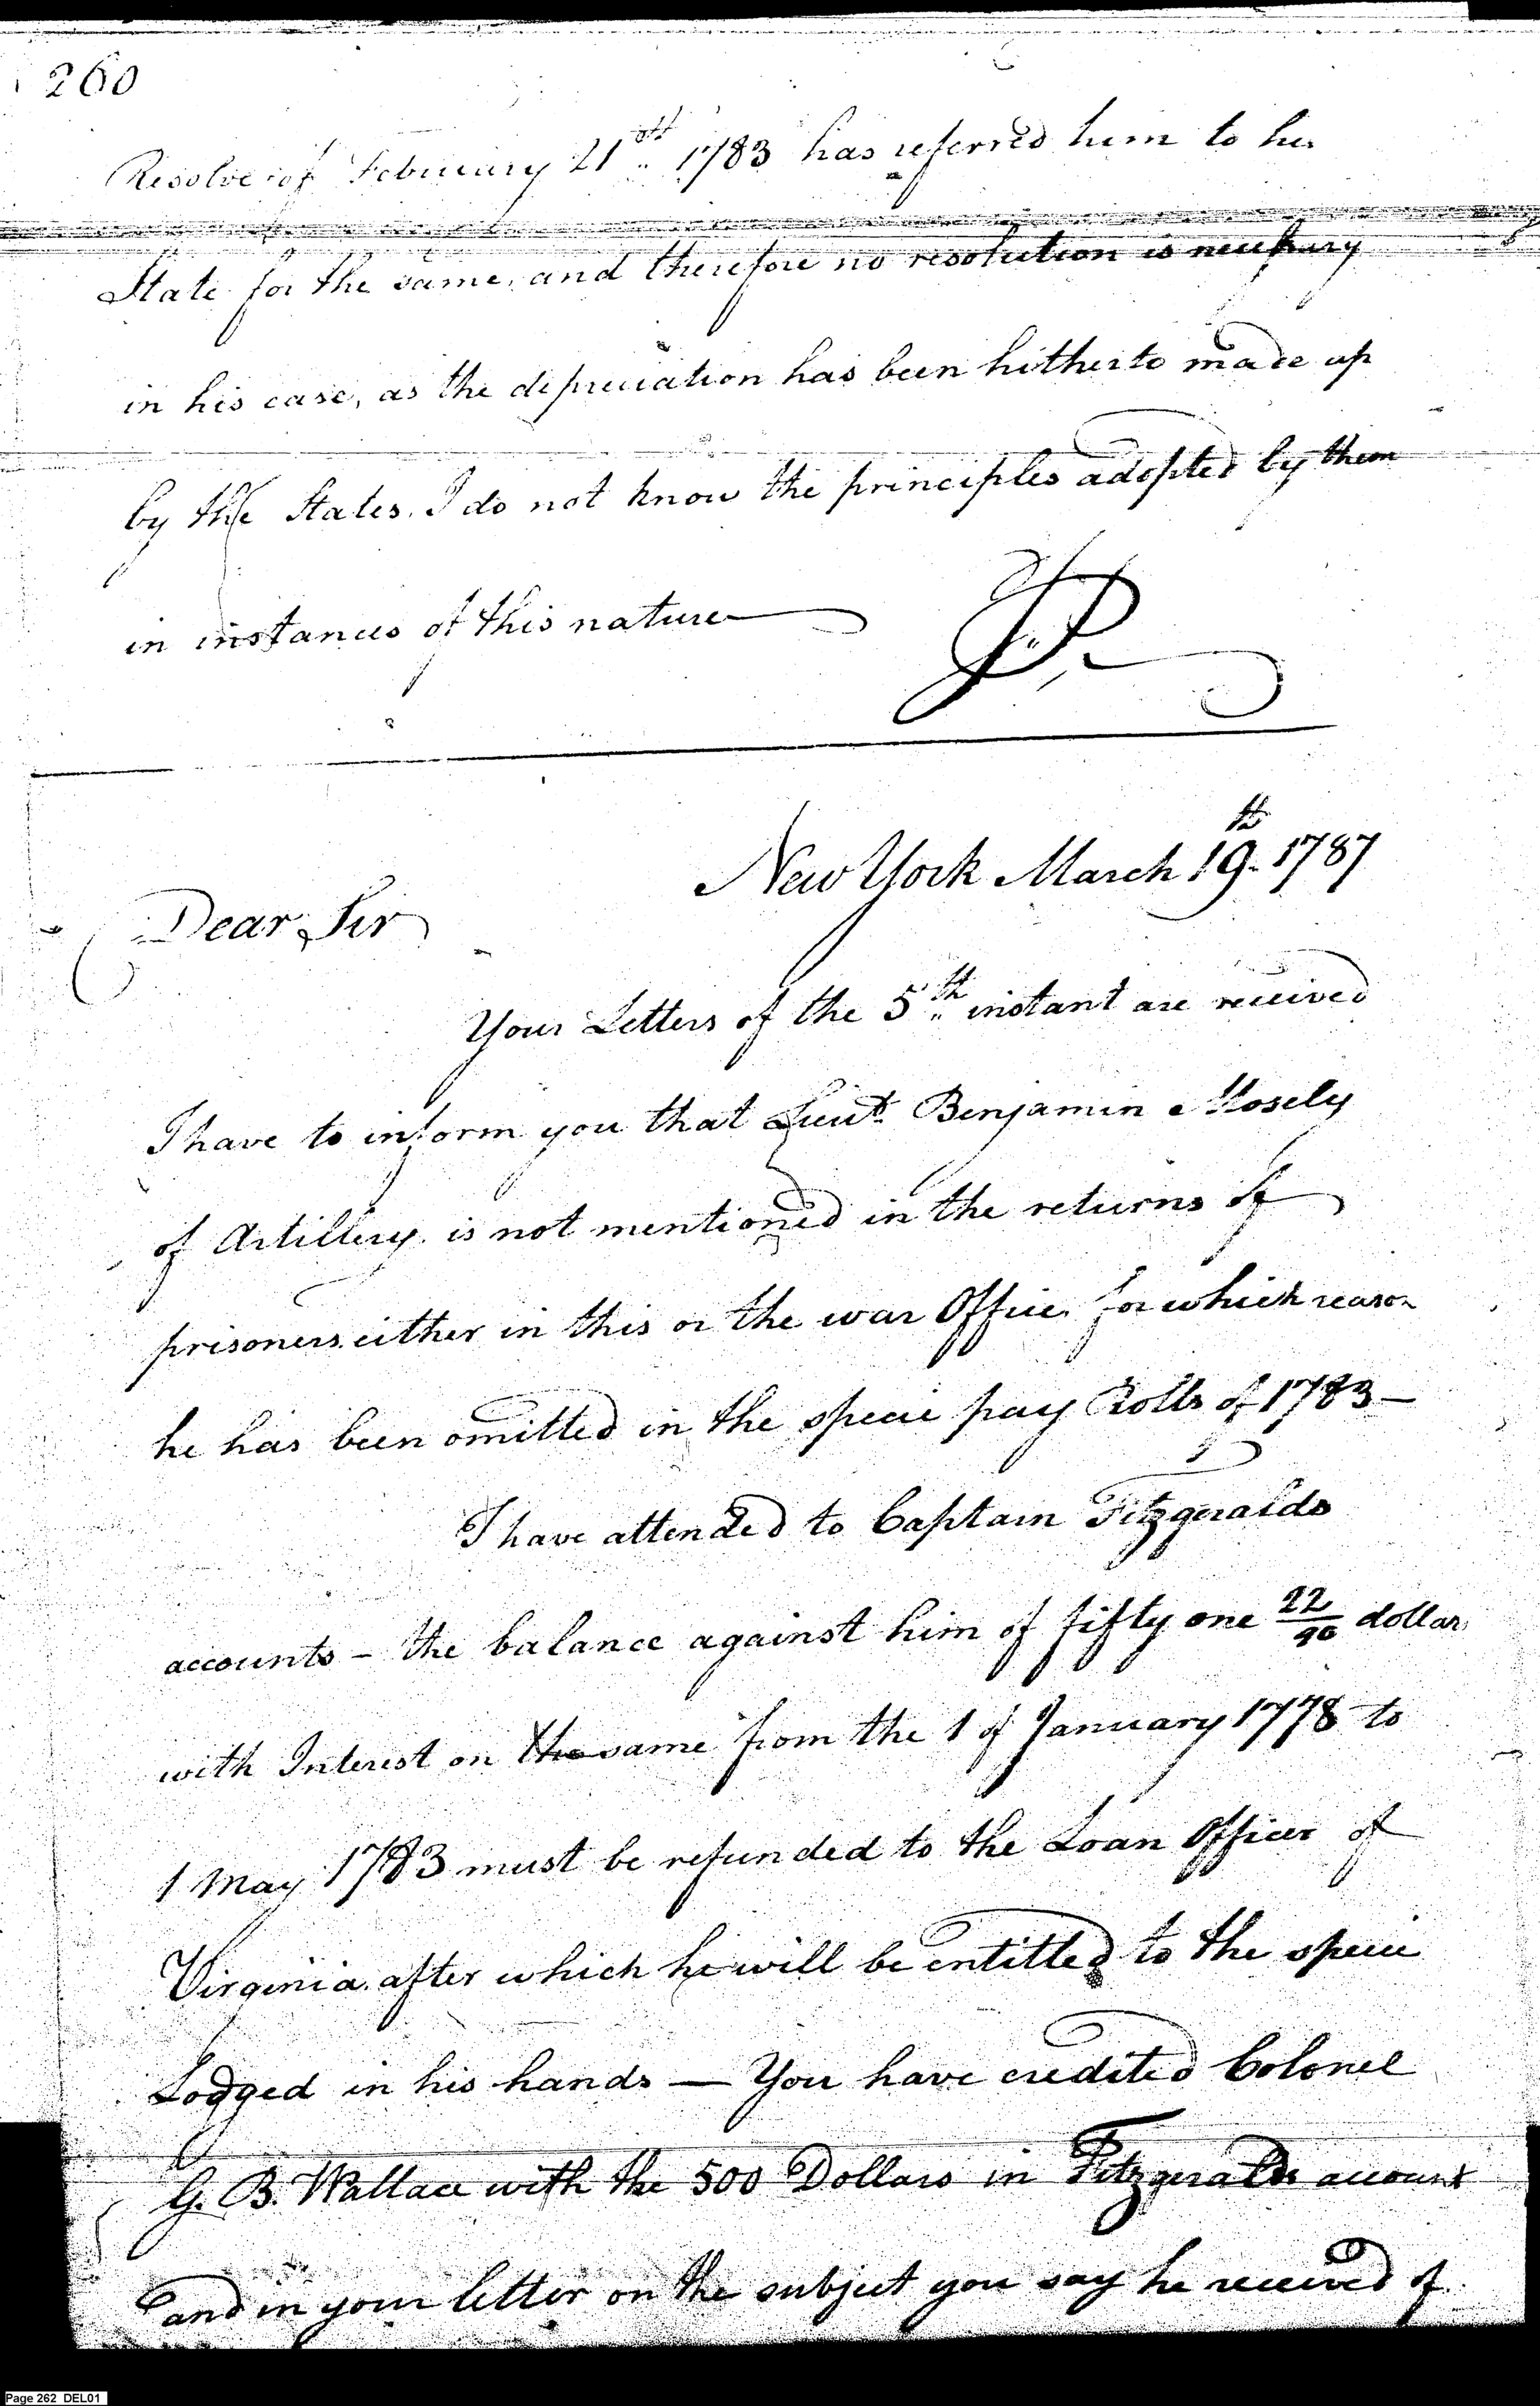 260
Resolve of February 21st 1783 has referred him to his
State for the same, and therefore no resolution is necessary
in his case, as the depreciation has been hitherto made up
by the States. I do not know the principles adopted by them
in instances of this nature
New York March 19th 1787
Dear Sir
Your Letters of the 5th instant are received
I have to inform you that Lieut Benjamin Mosely
of Artillery is not mentioned in the returns of
prisoners either in this or the war Office for which reason
he has been omitted in the specie pay Rolls of 1783 —
I have attended to Captain Fitzgeralds
accounts - the balance against him of fifty one 22/90 dollars
with Interest on the same from the 1 of January 1778 to
1 May 1783 must be refunded to the Loan Officer of
Virginia after which he will be entitled to the specie
Lodged in his hands — You have credited Colonel
G. B. Wallace with the 500 Dollars in Fitzgeralds account
and in your letter on the subject you say he received of
Page 262 DEL01